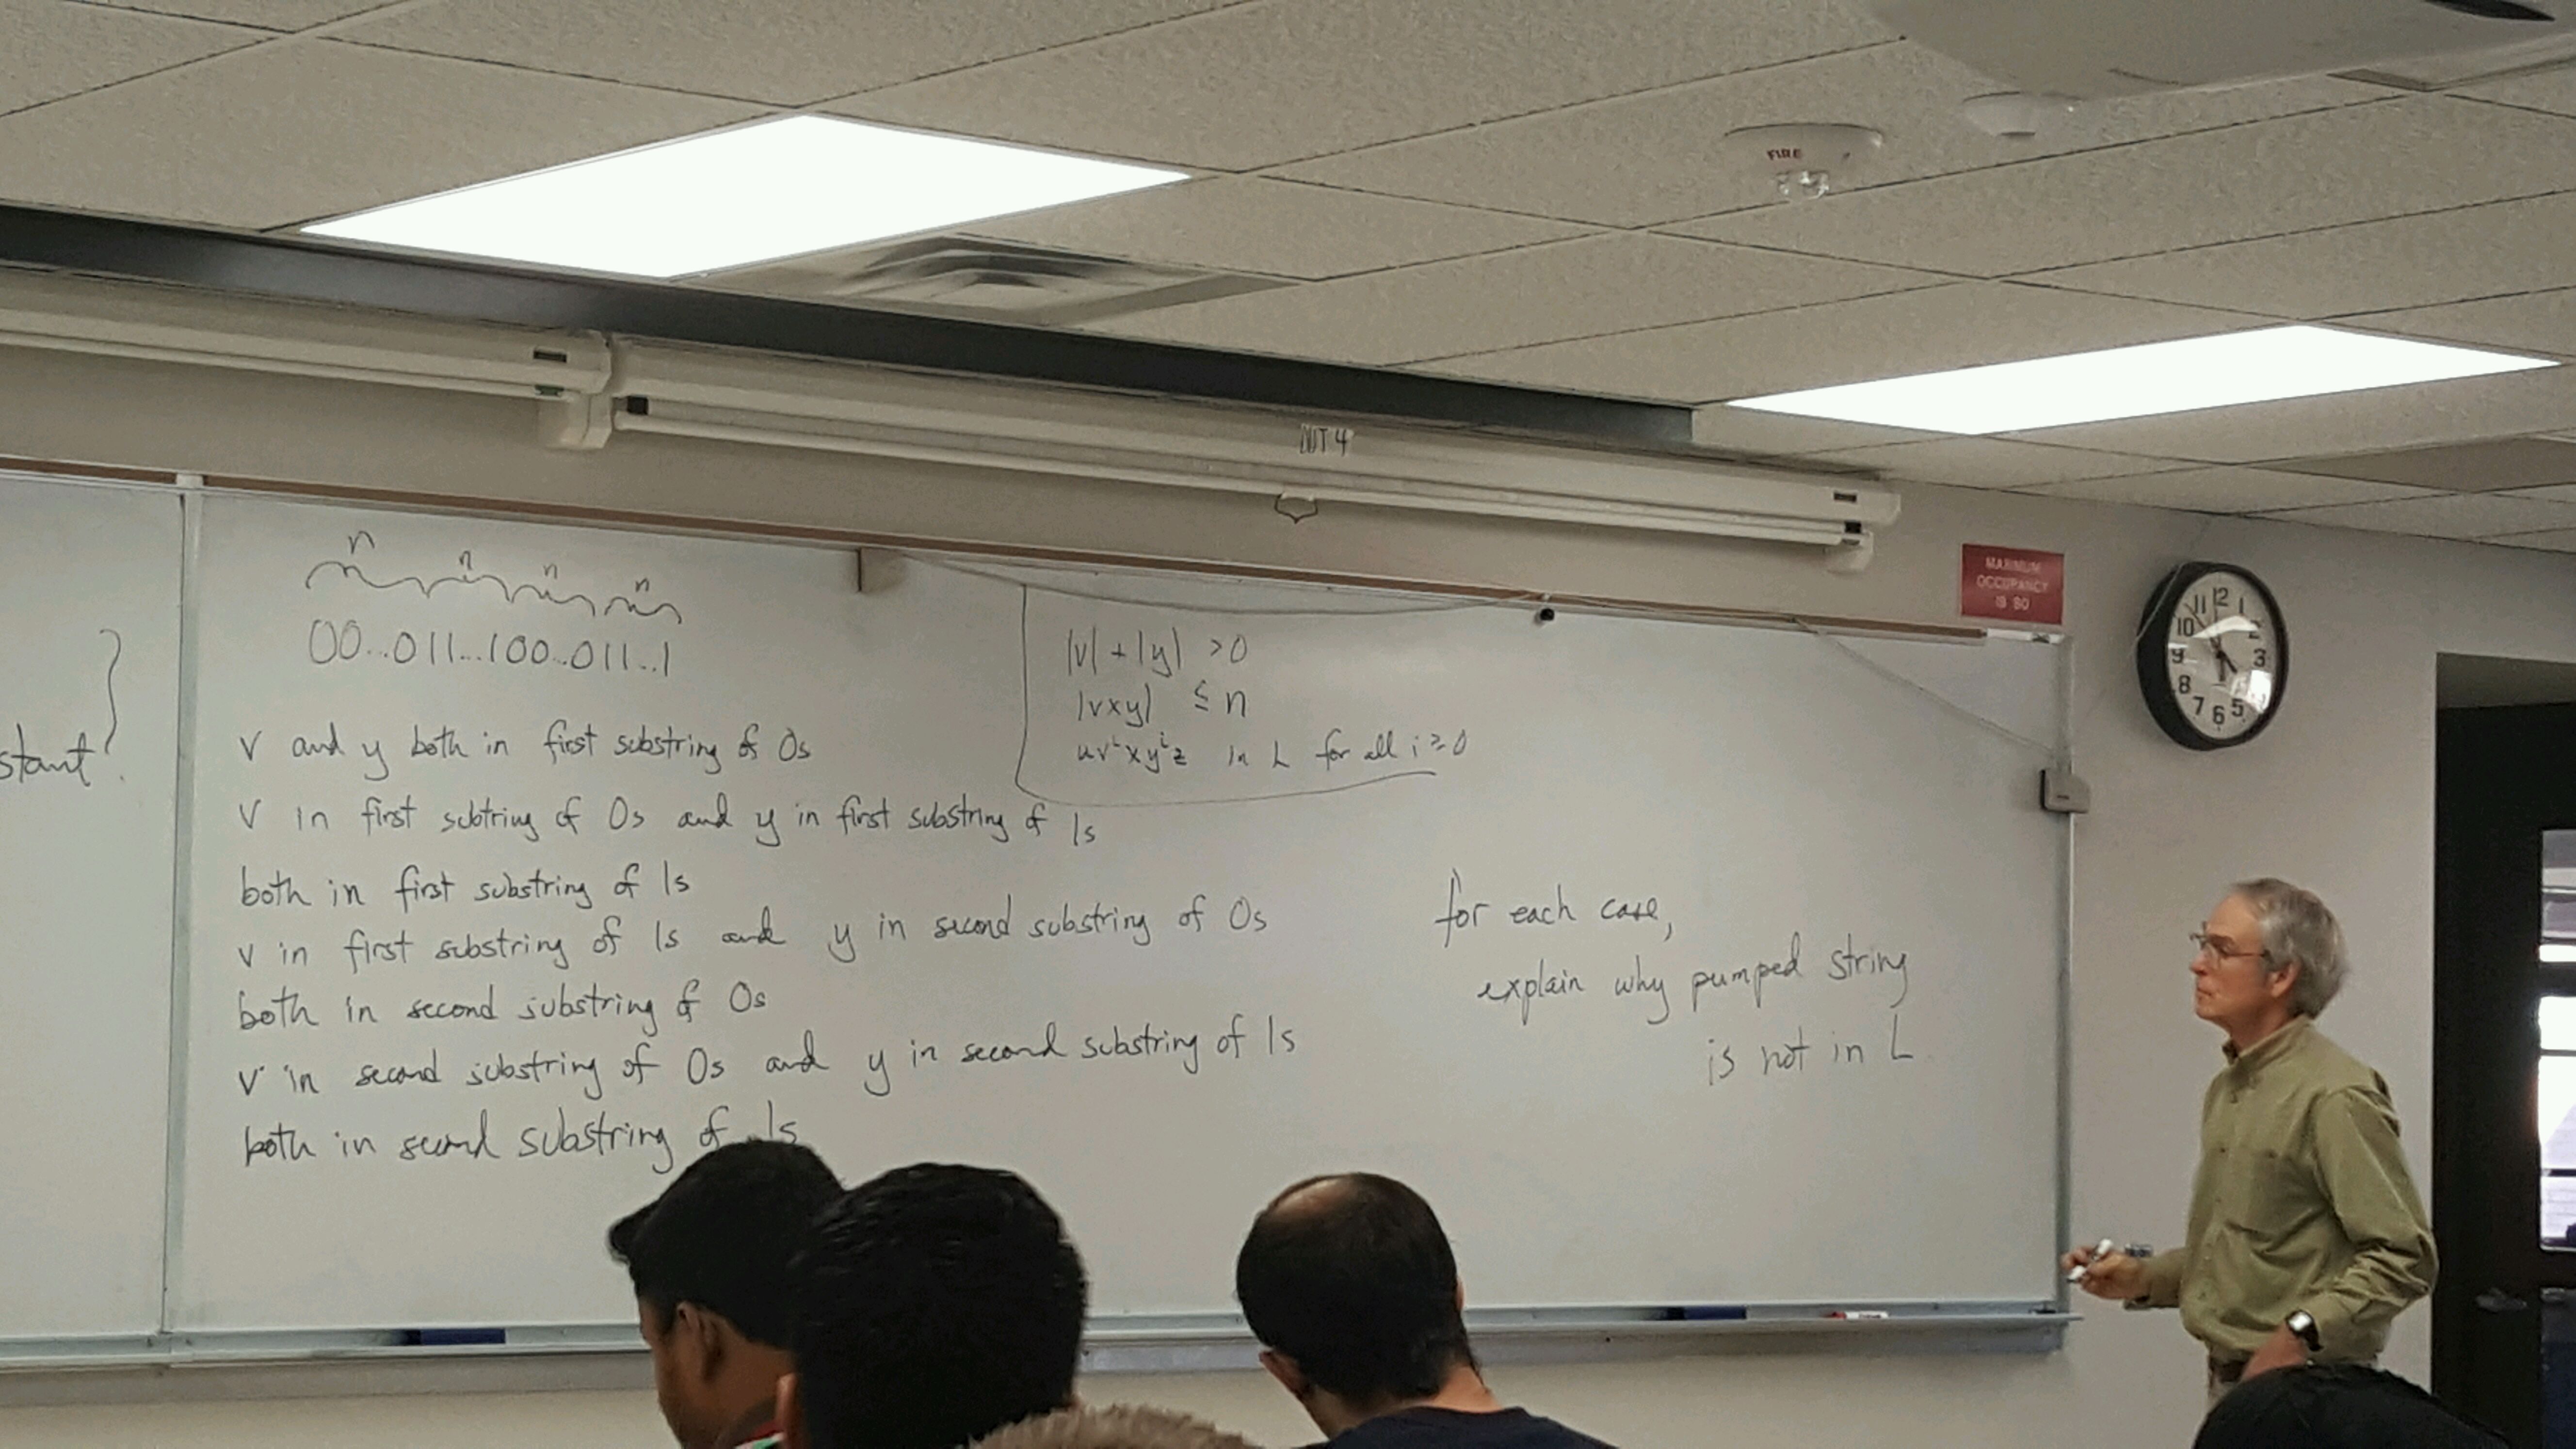 FIRE
NOT 4
MAXIMUM
OCCUPANCY
IS 80
12 1 2 3 5 6 7 8 9 10 11
n n n n
00...011...100...011...1
stant.
|v| + |y| > 0
|vxy| ≤ n
uvⁱxyⁱz in L for all i ≥ 0
v and y both in first substring of 0s
v in first subtring of 0s and y in first substring of 1s
both in first substring of 1s
v in first substring of 1s and y in second substring of 0s
both in second substring of 0s
v in second substring of 0s and y in second substring of 1s
both in second substring of 1s
for each case,
explain why pumped string
is not in L